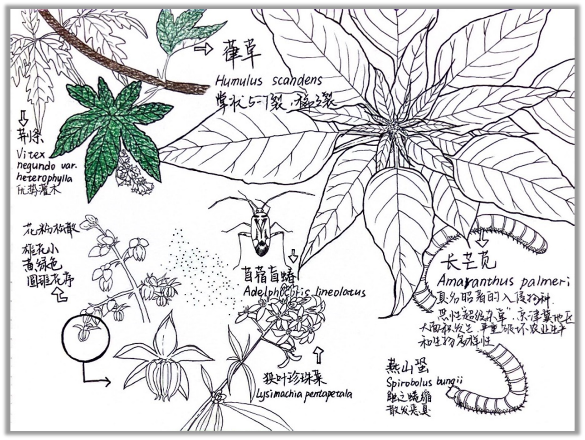 葎草
Humulus scandens
掌状5-7裂,
荆条
Vitex
negundo var.
heterophylla
优势灌木
花粉飘散
雄花小
黄绿色
圆锥花序
苜蓿盲蝽
Adelphocoris lineolatus
狭叶珍珠菜
Lysimachia pentapetala
长芒苋
Amaranthus palmeri
臭名昭著的入侵物种,
恶性超级杂草",京津冀地区
大面积发生,严重破坏农业生产
和生物多样性
燕山蛩
Spirobolus bungii
触之蜷缩
散发臭臭